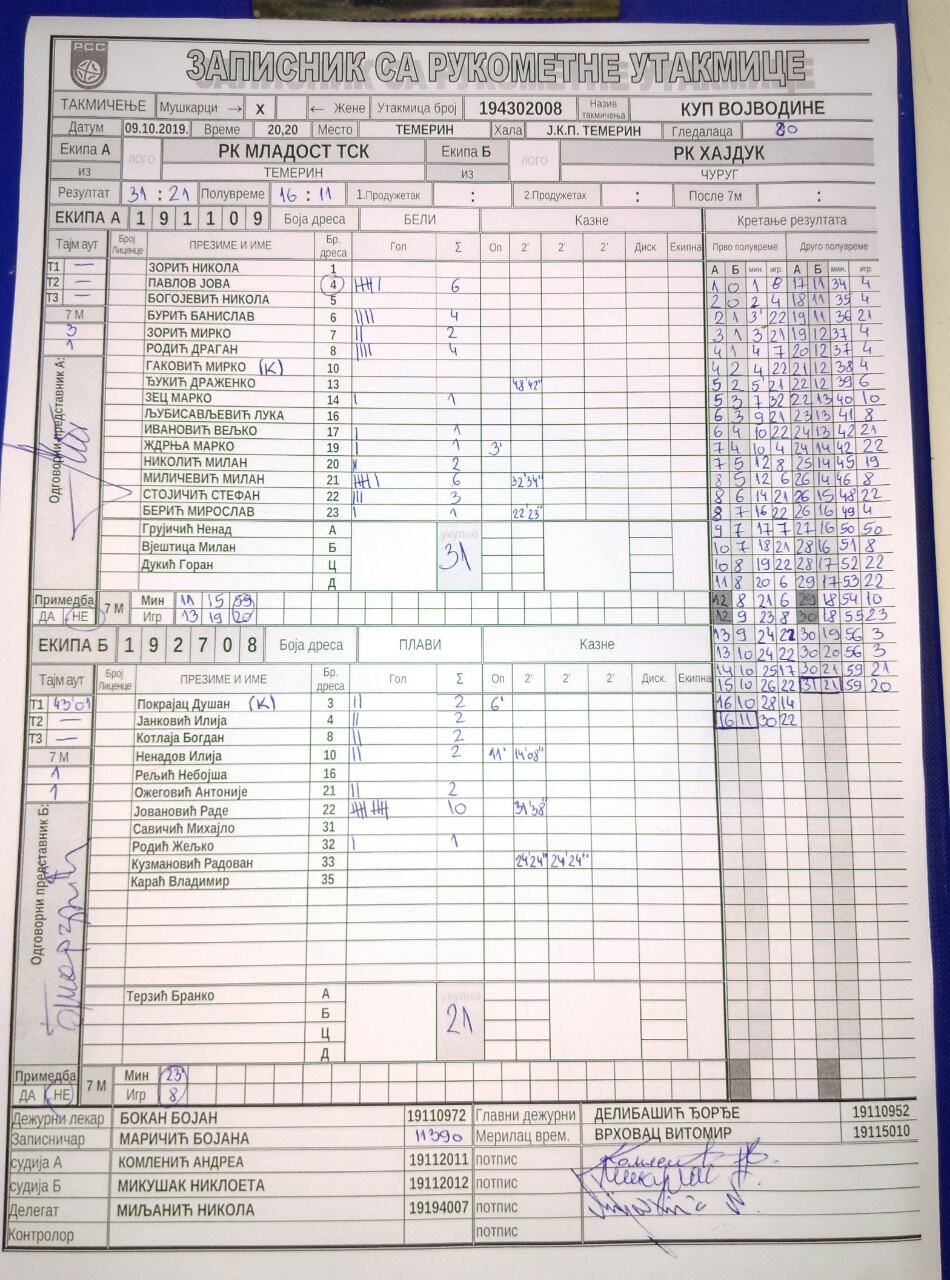 РСС
ЗАПИСНИК СА РУКОМЕТНЕ УТАКМИЦЕ
ТАКМИЧЕЊЕ Мушкарци → X ← Жене Утакмица број 194302008 Назив такмичења КУП ВОЈВОДИНЕ
Датум 09.10.2019. Време 20,20 Место ТЕМЕРИН Хала Ј.К.П. ТЕМЕРИН Гледалаца 80
Екипа А ЛОГО РК МЛАДОСТ ТСК Екипа Б ЛОГО РК ХАЈДУК
из ТЕМЕРИН из ЧУРУГ
Резултат 31 : 21 Полувреме 16 : 11 1.Продужетак : 2.Продужетак : После 7м :
ЕКИПА А 1 9 1 1 0 9 Боја дреса БЕЛИ Казне Кретање резултата
Тајм аут Број Лиценце ПРЕЗИМЕ И ИМЕ Бр. дреса Гол Σ Оп 2' 2' 2' Диск. Екипна Прво полувреме Друго полувреме
А Б мин. игр. А Б мин. игр.
Т1 — ЗОРИЋ НИКОЛА 1
Т2 — ПАВЛОВ ЈОВА 4 6
Т3 — БОГОЈЕВИЋ НИКОЛА 5
7 М БУРИЋ БАНИСЛАВ 6 |||| 4
3 ЗОРИЋ МИРКО 7 || 2
РОДИЋ ДРАГАН 8 |||| 4
ГАКОВИЋ МИРКО (К) 10
ЂУКИЋ ДРАЖЕНКО 13 48'42"
ЗЕЦ МАРКО 14 | 1
ЉУБИСАВЉЕВИЋ ЛУКА 16
ИВАНОВИЋ ВЕЉКО 17 | 1
ЖДРЊА МАРКО 19 | 1 3'
НИКОЛИЋ МИЛАН 20 2
МИЛИЧЕВИЋ МИЛАН 21 6 32'34"
СТОЈИЧИЋ СТЕФАН 22 ||| 3
БЕРИЋ МИРОСЛАВ 23 | 1 22'23"
Одговорни представник А:
Грујичић Ненад А укупно
Вјештица Милан Б 31
Дукић Горан Ц
Д
Примедба 7 М Мин 11 15 59
ДА НЕ Игр 13 19 20
1 0 1 8 17 11 34 4
2 0 2 4 18 11 35 4
2 1 3' 22 19 11 36 21
3 1 3 21 19 12 37 4
4 1 4 7 20 12 37 4
4 2 4 22 21 12 38 4
5 2 5' 21 22 12 39 6
5 3 7 32 22 13 40 10
6 3 9 21 23 13 41 8
6 4 10 22 24 13 42 21
7 4 10 4 24 14 42 22
7 5 12 8 25 14 45 19
8 5 12 6 26 14 46 8
8 6 14 21 26 15 48 22
8 7 16 22 26 16 49 4
9 7 17 7 27 16 50 50
10 7 18 21 28 16 51 8
10 8 19 22 28 17 52 22
11 8 20 6 29 17 53 22
12 8 21 6 29 18 54 10
12 9 23 8 30 18 55 23
13 9 24 22 30 19 56 3
13 10 24 22 30 20 56 3
14 10 25 17 30 21 59 21
15 10 26 22 31 21 59 20
16 10 28 14
16 11 30 22
ЕКИПА Б 1 9 2 7 0 8 Боја дреса ПЛАВИ Казне
Тајм аут Број Лиценце ПРЕЗИМЕ И ИМЕ Бр. дреса Гол Σ Оп 2' 2' 2' Диск. Екипна
Т1 43'01 Покрајац Душан (К) 3 || 2 6'
Т2 — Јанковић Илија 4 || 2
Т3 — Котлаја Богдан 8 || 2
7 М Ненадов Илија 10 || 2 11' 14'08"
1 Рељић Небојша 16
1 Ожеговић Антоније 21 || 2
Јовановић Раде 22 10 31'38"
Савичић Михајло 31
Родић Жељко 32 | 1
Кузмановић Радован 33 24'24" 24'24"
Караћ Владимир 35
Одговорни представник Б:
Терзић Бранко А укупно
Б 21
Ц
Д
Примедба 7 М Мин 23'
ДА НЕ Игр 8
Дежурни лекар БОКАН БОЈАН 19110972 Главни дежурни ДЕЛИБАШИЋ ЂОРЂЕ 19110952
Записничар МАРИЧИЋ БОЈАНА 11390 Мерилац врем. ВРХОВАЦ ВИТОМИР 19115010
судија А КОМЛЕНИЋ АНДРЕА 19112011 потпис
судија Б МИКУШАК НИКЛОЕТА 19112012 потпис
Делегат МИЉАНИЋ НИКОЛА 19194007 потпис
Контролор потпис